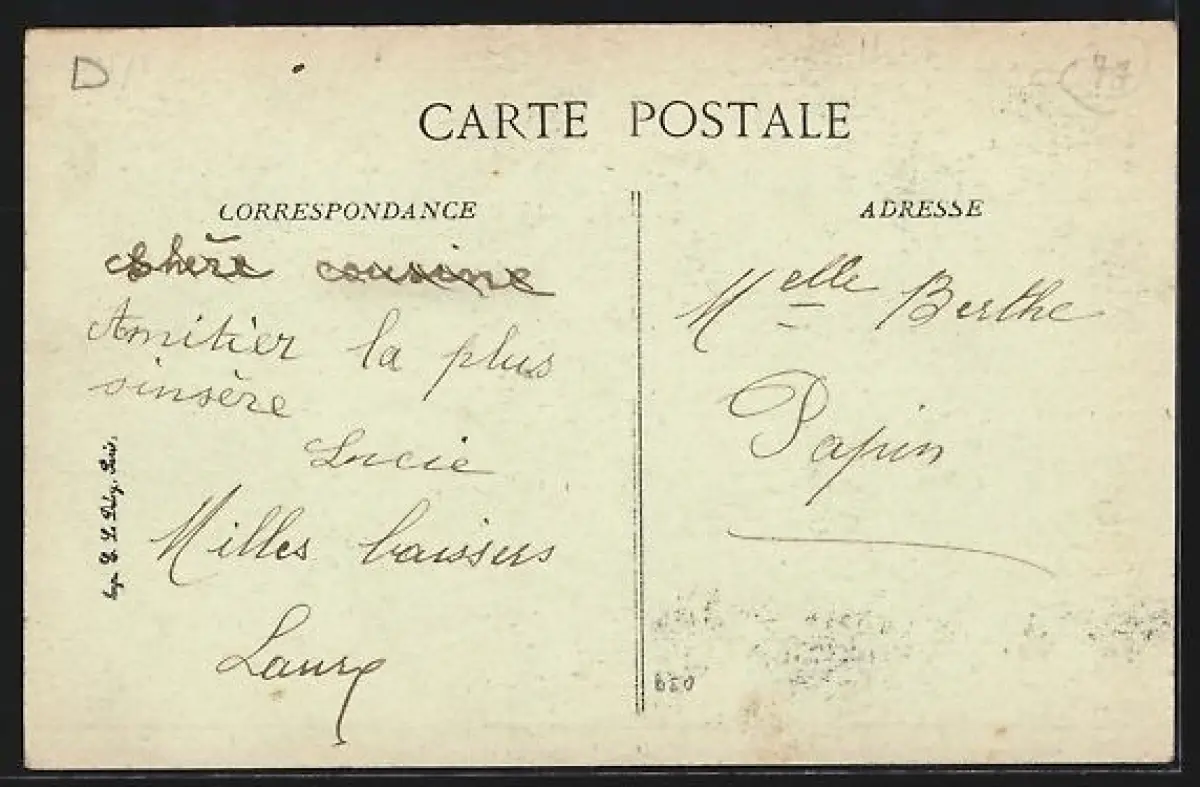 D
77
CARTE POSTALE
CORRESPONDANCE
chère cousine
Amitier la plus
sinsère
Lucie
Milles baissers
Laure
Imp. E. Le Deley, Paris.
ADRESSE
Melle Berthe
Papin